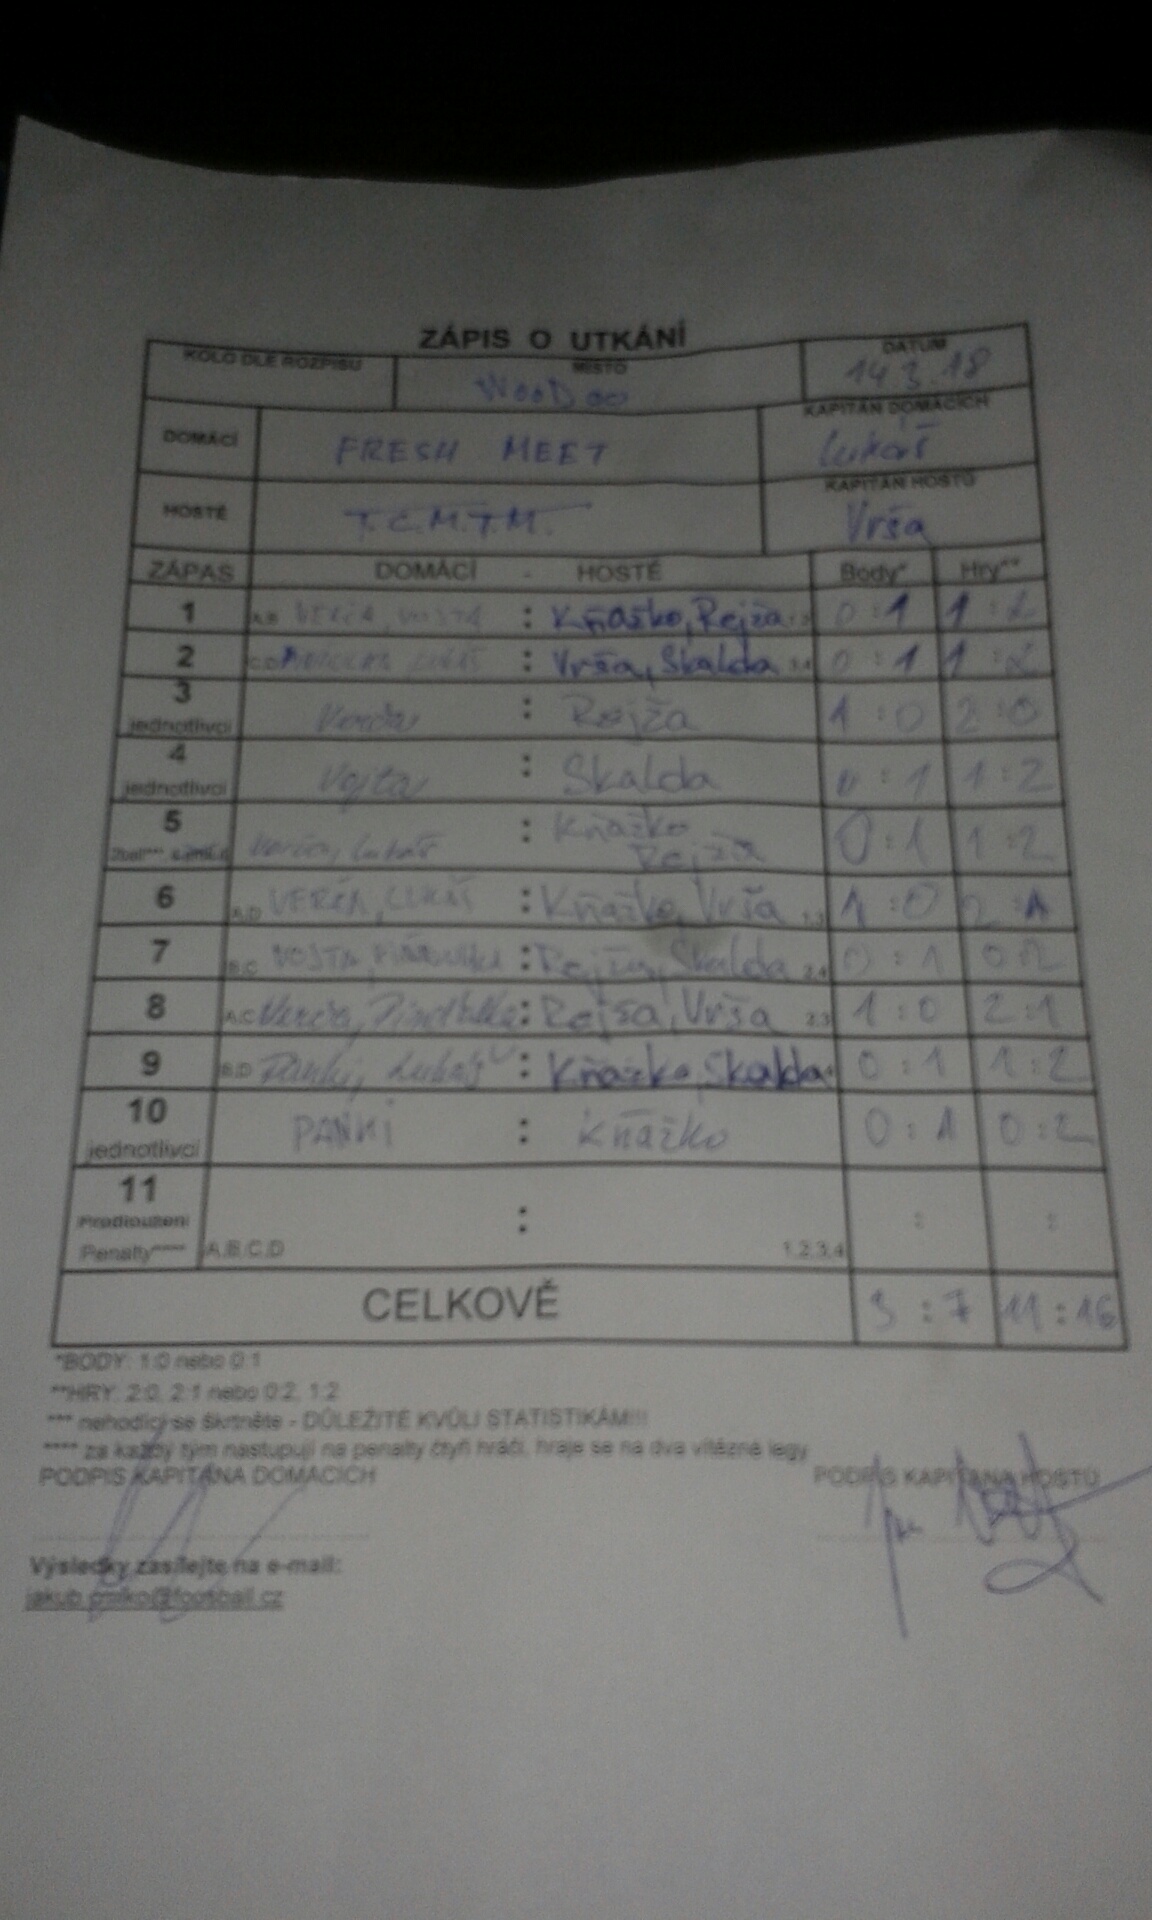 ZÁPIS O UTKÁNÍ
KOLO DLE ROZPISU MÍSTO DATUM
WooDoo 14.3.18
DOMÁCÍ FRESH MEET KAPITÁN DOMÁCÍCH
Lukáš
HOSTÉ T.C.M.T.M. KAPITÁN HOSTŮ
Vrša
ZÁPAS DOMÁCÍ - HOSTÉ Body* Hry**
1 A,B VERČA, VOJTA : Kňažko, Rejža 0:1 1:2
2 C,D LUKÁŠ : Vrša, Skalda 3,4 0:1 1:2
3 jednotlivci Verča : Rejža 1:0 2:0
4 jednotlivci Vojta : Skalda 0:1 1:2
5 Verča, Lukáš : Kňažko Rejža 0:1 1:2
6 A,D VERČA, LUKÁŠ : Kňažko, Vrša 1,3 1:0 2:1
7 B,C VOJTA, : Rejža, Skalda 2,4 0:1 0:2
8 A,C Verča, : Rejža, Vrša 2,3 1:0 2:1
9 B,D Panki, Lukáš : Kňažko, Skalda 0:1 1:2
10 jednotlivci PANKI : Kňažko 0:1 0:2
11
Prodloužení
Penalty**** A,B,C,D : 1,2,3,4 : :
CELKOVĚ 3:7 11:16
*BODY: 1:0 nebo 0:1
**HRY: 2:0, 2:1 nebo 0:2, 1:2
*** nehodící se škrtněte - DŮLEŽITÉ KVŮLI STATISTIKÁM!!!
**** za každý tým nastupují na penalty čtyři hráči, hraje se na dva vítězné legy
PODPIS KAPITÁNA DOMÁCÍCH PODPIS KAPITÁNA HOSTŮ
Výsledky zasílejte na e-mail: